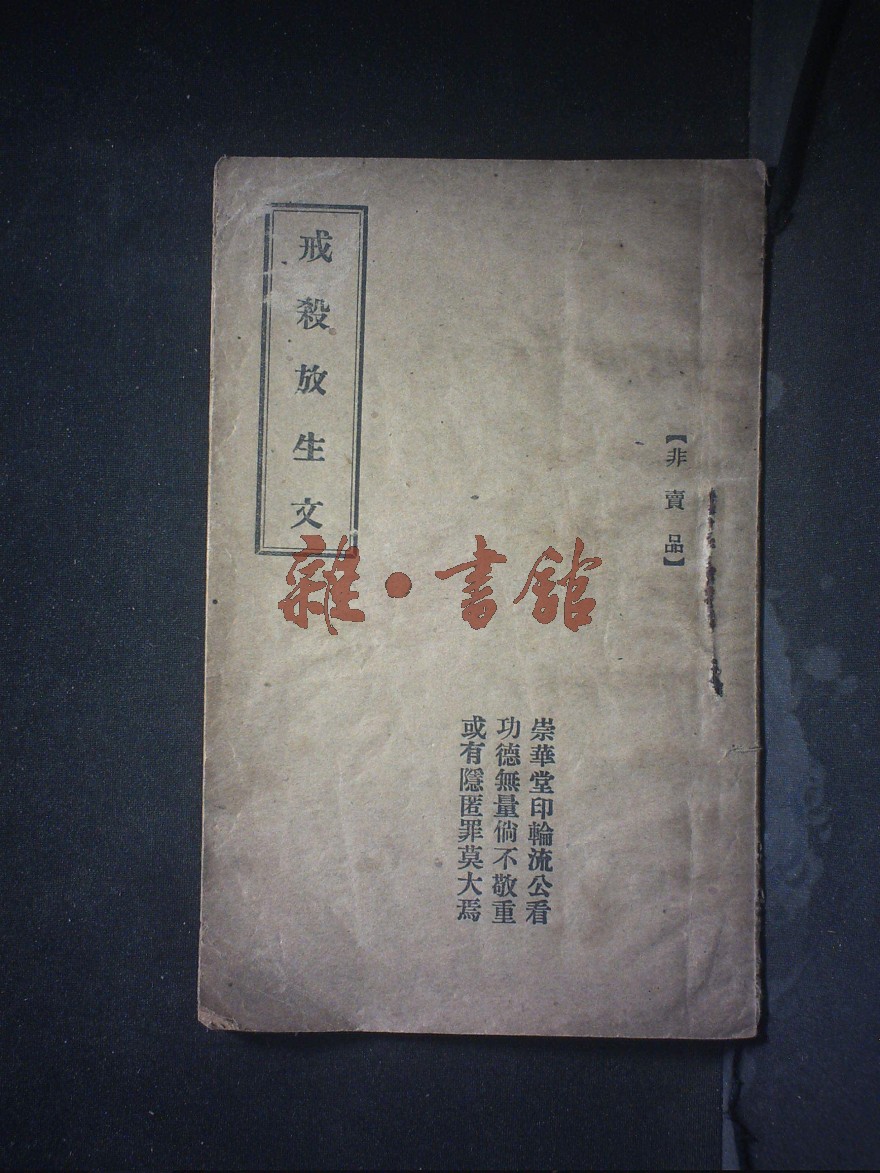 【非賣品】
崇華堂印輪流公看
功德無量倘不敬重
或有隱匿罪莫大焉
戒殺放生文
雜·書館